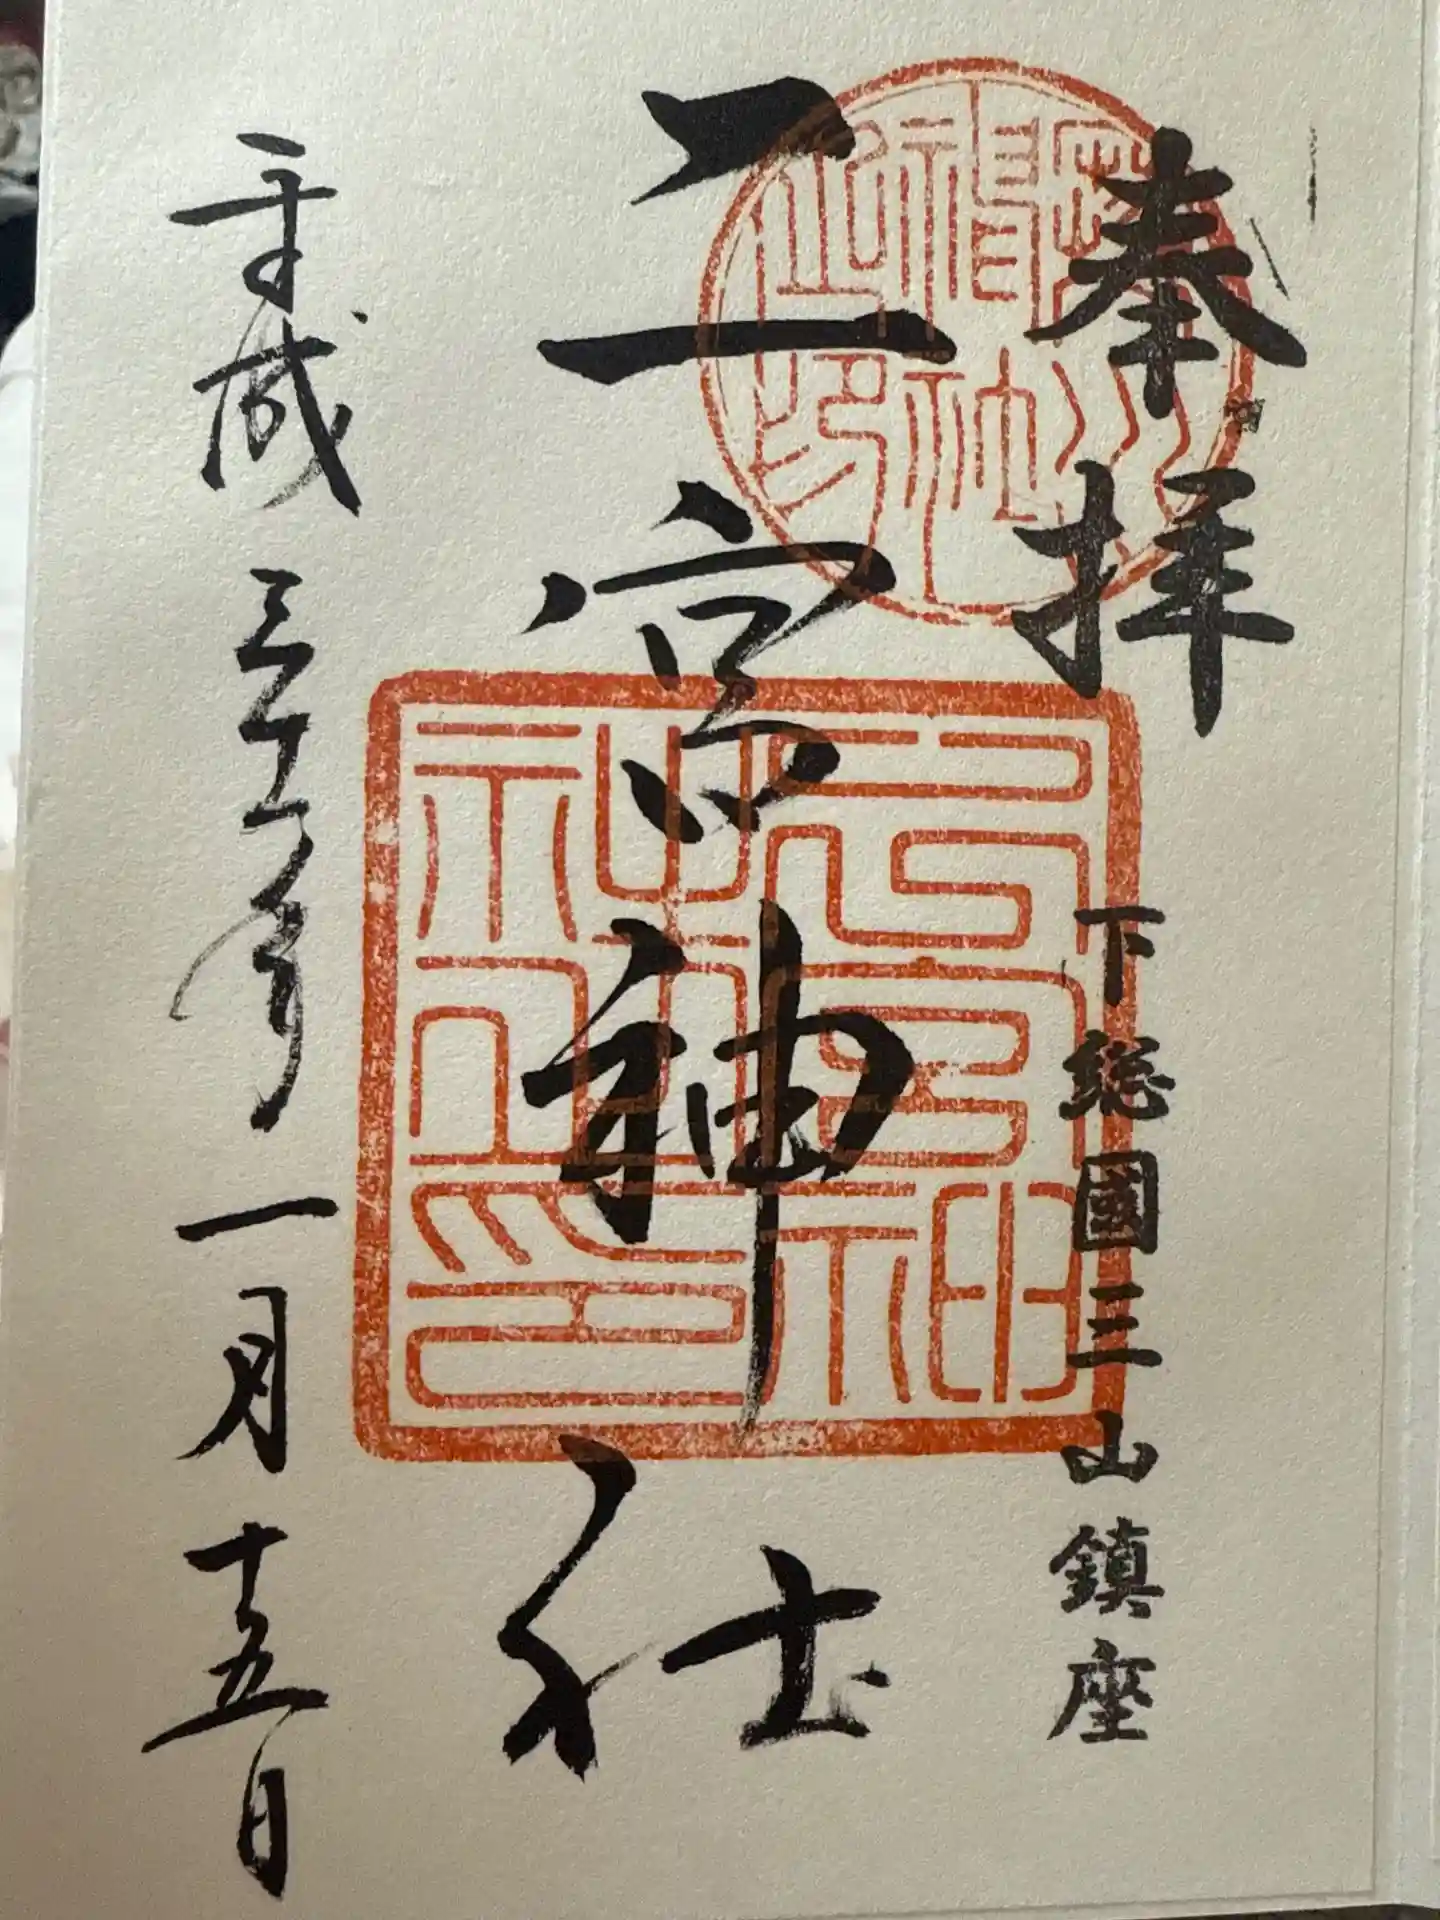 奉拝
下総國三山鎮座
二宮神社
平成三十一年一月十五日